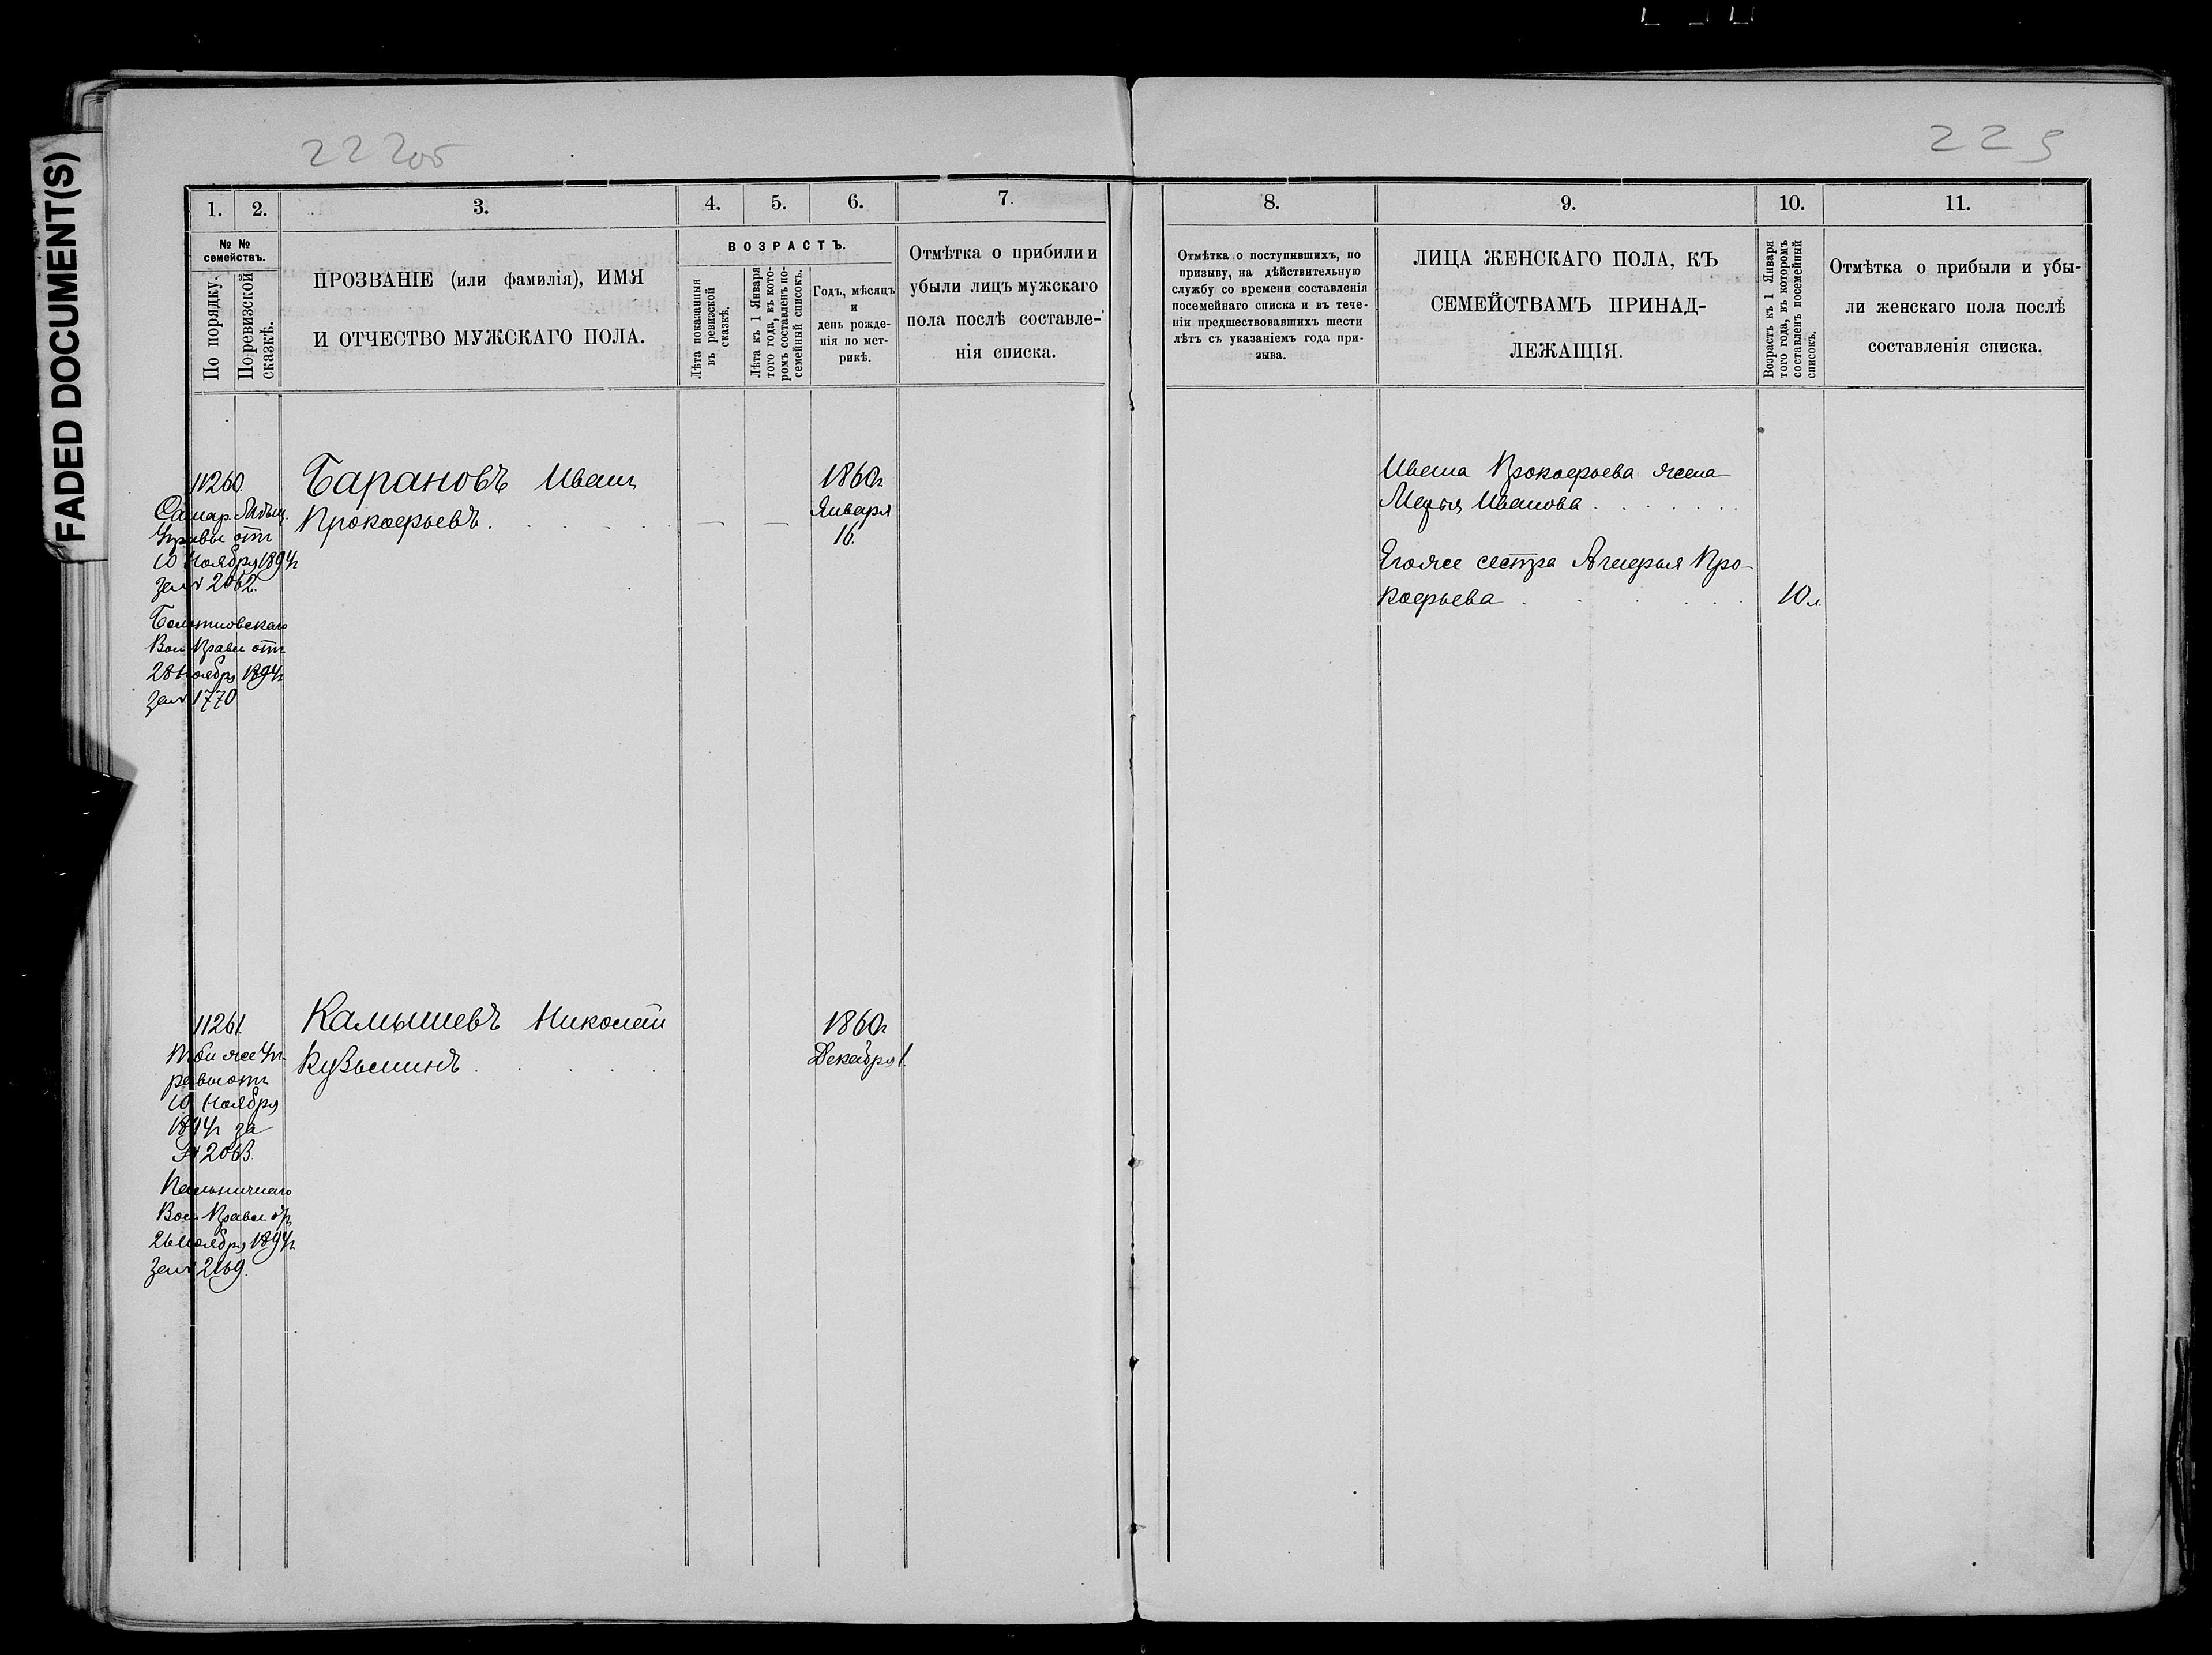 FADED DOCUMENT(S)
222об
1.
2.
3.
4.
5.
6.
7.
№ №
семействъ.
По порядку.
По ревизской
сказкѣ.
ПРОЗВАНІЕ (или фамилія), ИМЯ
И ОТЧЕСТВО МУЖСКАГО ПОЛА.
ВОЗРАСТЪ.
Лѣта показанныя
въ ревизской
сказкѣ.
Лѣта къ 1 Января
того года, въ кото-
ромъ составленъ по-
семейный списокъ.
Годъ, мѣсяцъ
и
день рожде-
нія по мет-
рикѣ.
Отмѣтка о прибыли и
убыли лицъ мужскаго
пола послѣ составле-
нія списка.
11260.
Самар. Мѣщ.
Управы отъ
10 Ноября 1894г
за № 2062.
Вол Правл отъ
28 Ноября 1894г
за № 1770
Барановъ Иванъ
Прокофьевъ.
1860г
Января
16.
11261.
Той же Уп-
равы отъ
10 Ноября
1894г за
№ 2063.
Вол Правл от
26 Ноября 1894г
за № 2169.
Камышевъ Николай
Кузьминъ
1860г
Декабря 1.
223
8.
9.
10.
11.
Отмѣтка о поступившихъ, по
призыву, на дѣйствительную
службу со времени составленія
посемейнаго списка и въ тече-
ніи предшествовавшихъ шести
лѣтъ съ указаніемъ года при-
зыва.
ЛИЦА ЖЕНСКАГО ПОЛА, КЪ
СЕМЕЙСТВАМЪ ПРИНАД-
ЛЕЖАЩІЯ.
Возрастъ къ 1 Января
того года, въ которомъ
составленъ посемейный
списокъ.
Отмѣтка о прибыли и убы-
ли женскаго пола послѣ
составленія списка.
Ивана Прокофьева жена
Марья Иванова
Его же сестра Про-
кофьева
10 л.